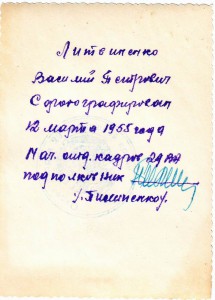 Литвиненко
Василий Петрович
Сфотографирован
12 марта 1955 года
Нач. отд. кадров 24 ВА
подполковник
/. Пилипенко/.